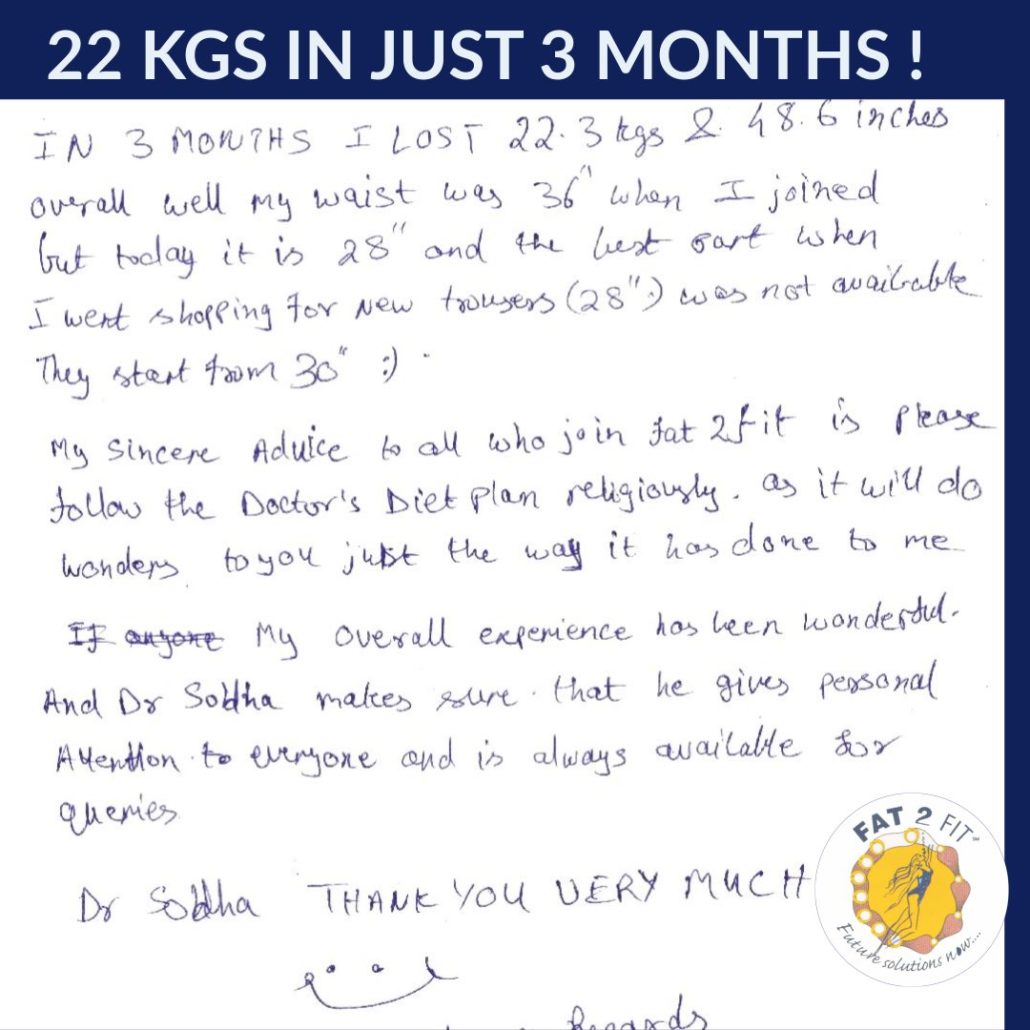 22 KGS IN JUST 3 MONTHS !
IN 3 MONTHS I LOST 22.3 kgs & 48.6 inches
overall well my waist was 36" when I joined
but today it is 28" and the best part when
I went shopping for new trousers (28".) was not available
They start from 30" :) .
My sincere Advice to all who join fat 2 fit is please
follow the Doctor's Diet plan religiously. as it will do
wonders to you just the way it has done to me
If anyone My overall experience has been wonderful.
And Dr Sobtha makes sure that he gives personal
Attention to everyone and is always available for
queries.
Dr Sobtha THANK YOU VERY MUCH
Regards
FAT 2 FIT™
Future solutions now....